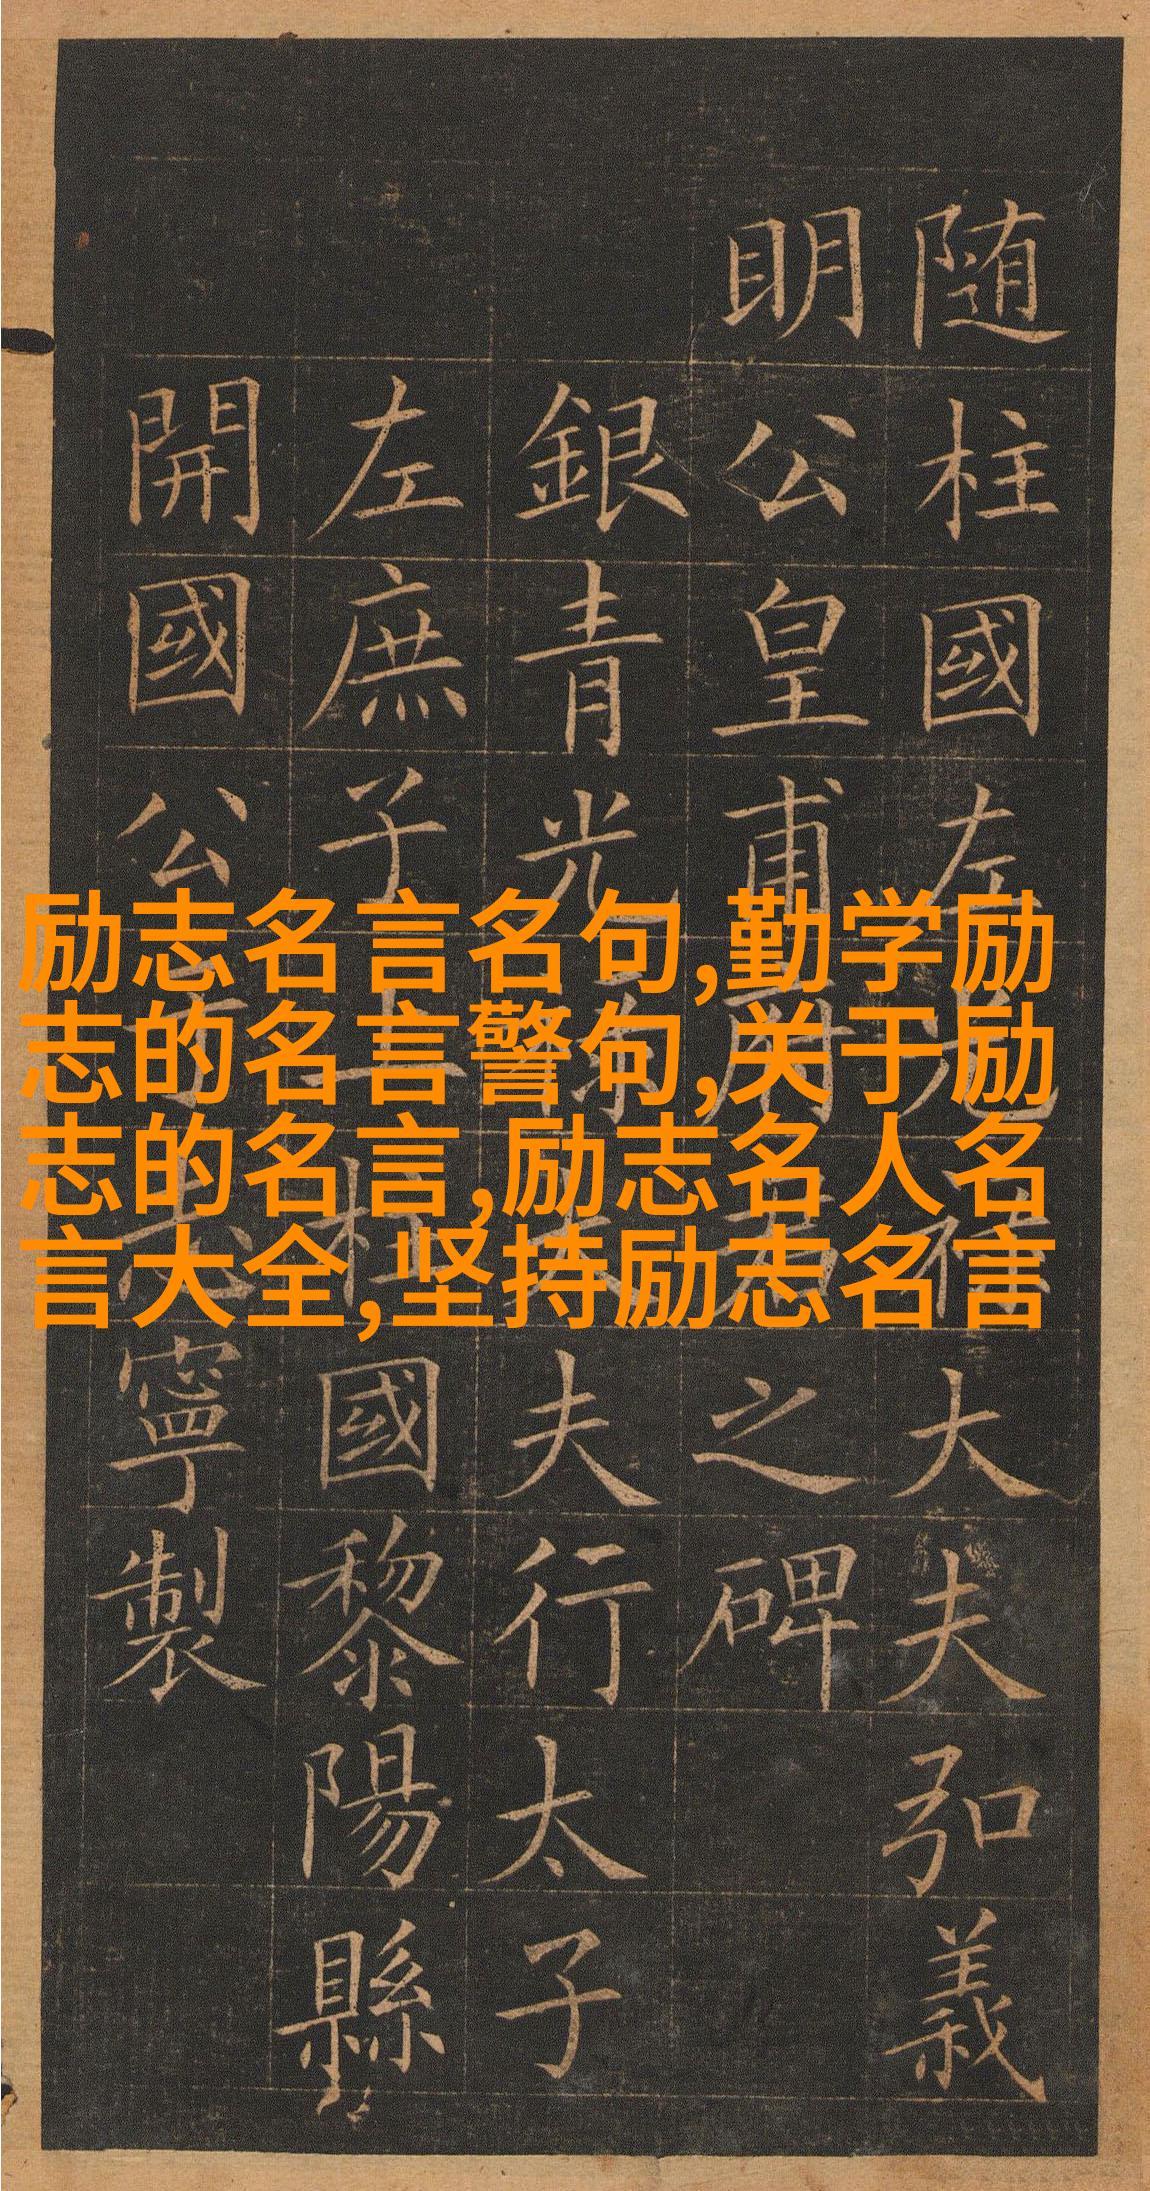 随柱國左光禄大夫弘義
明公皇甫府君之碑
銀青光禄大夫行太子
左庶子上柱國黎陽縣
開國公于志寧製
励志名言名句,勤学励
志的名言警句,关于励
志的名言,励志名人名
言大全,坚持励志名言